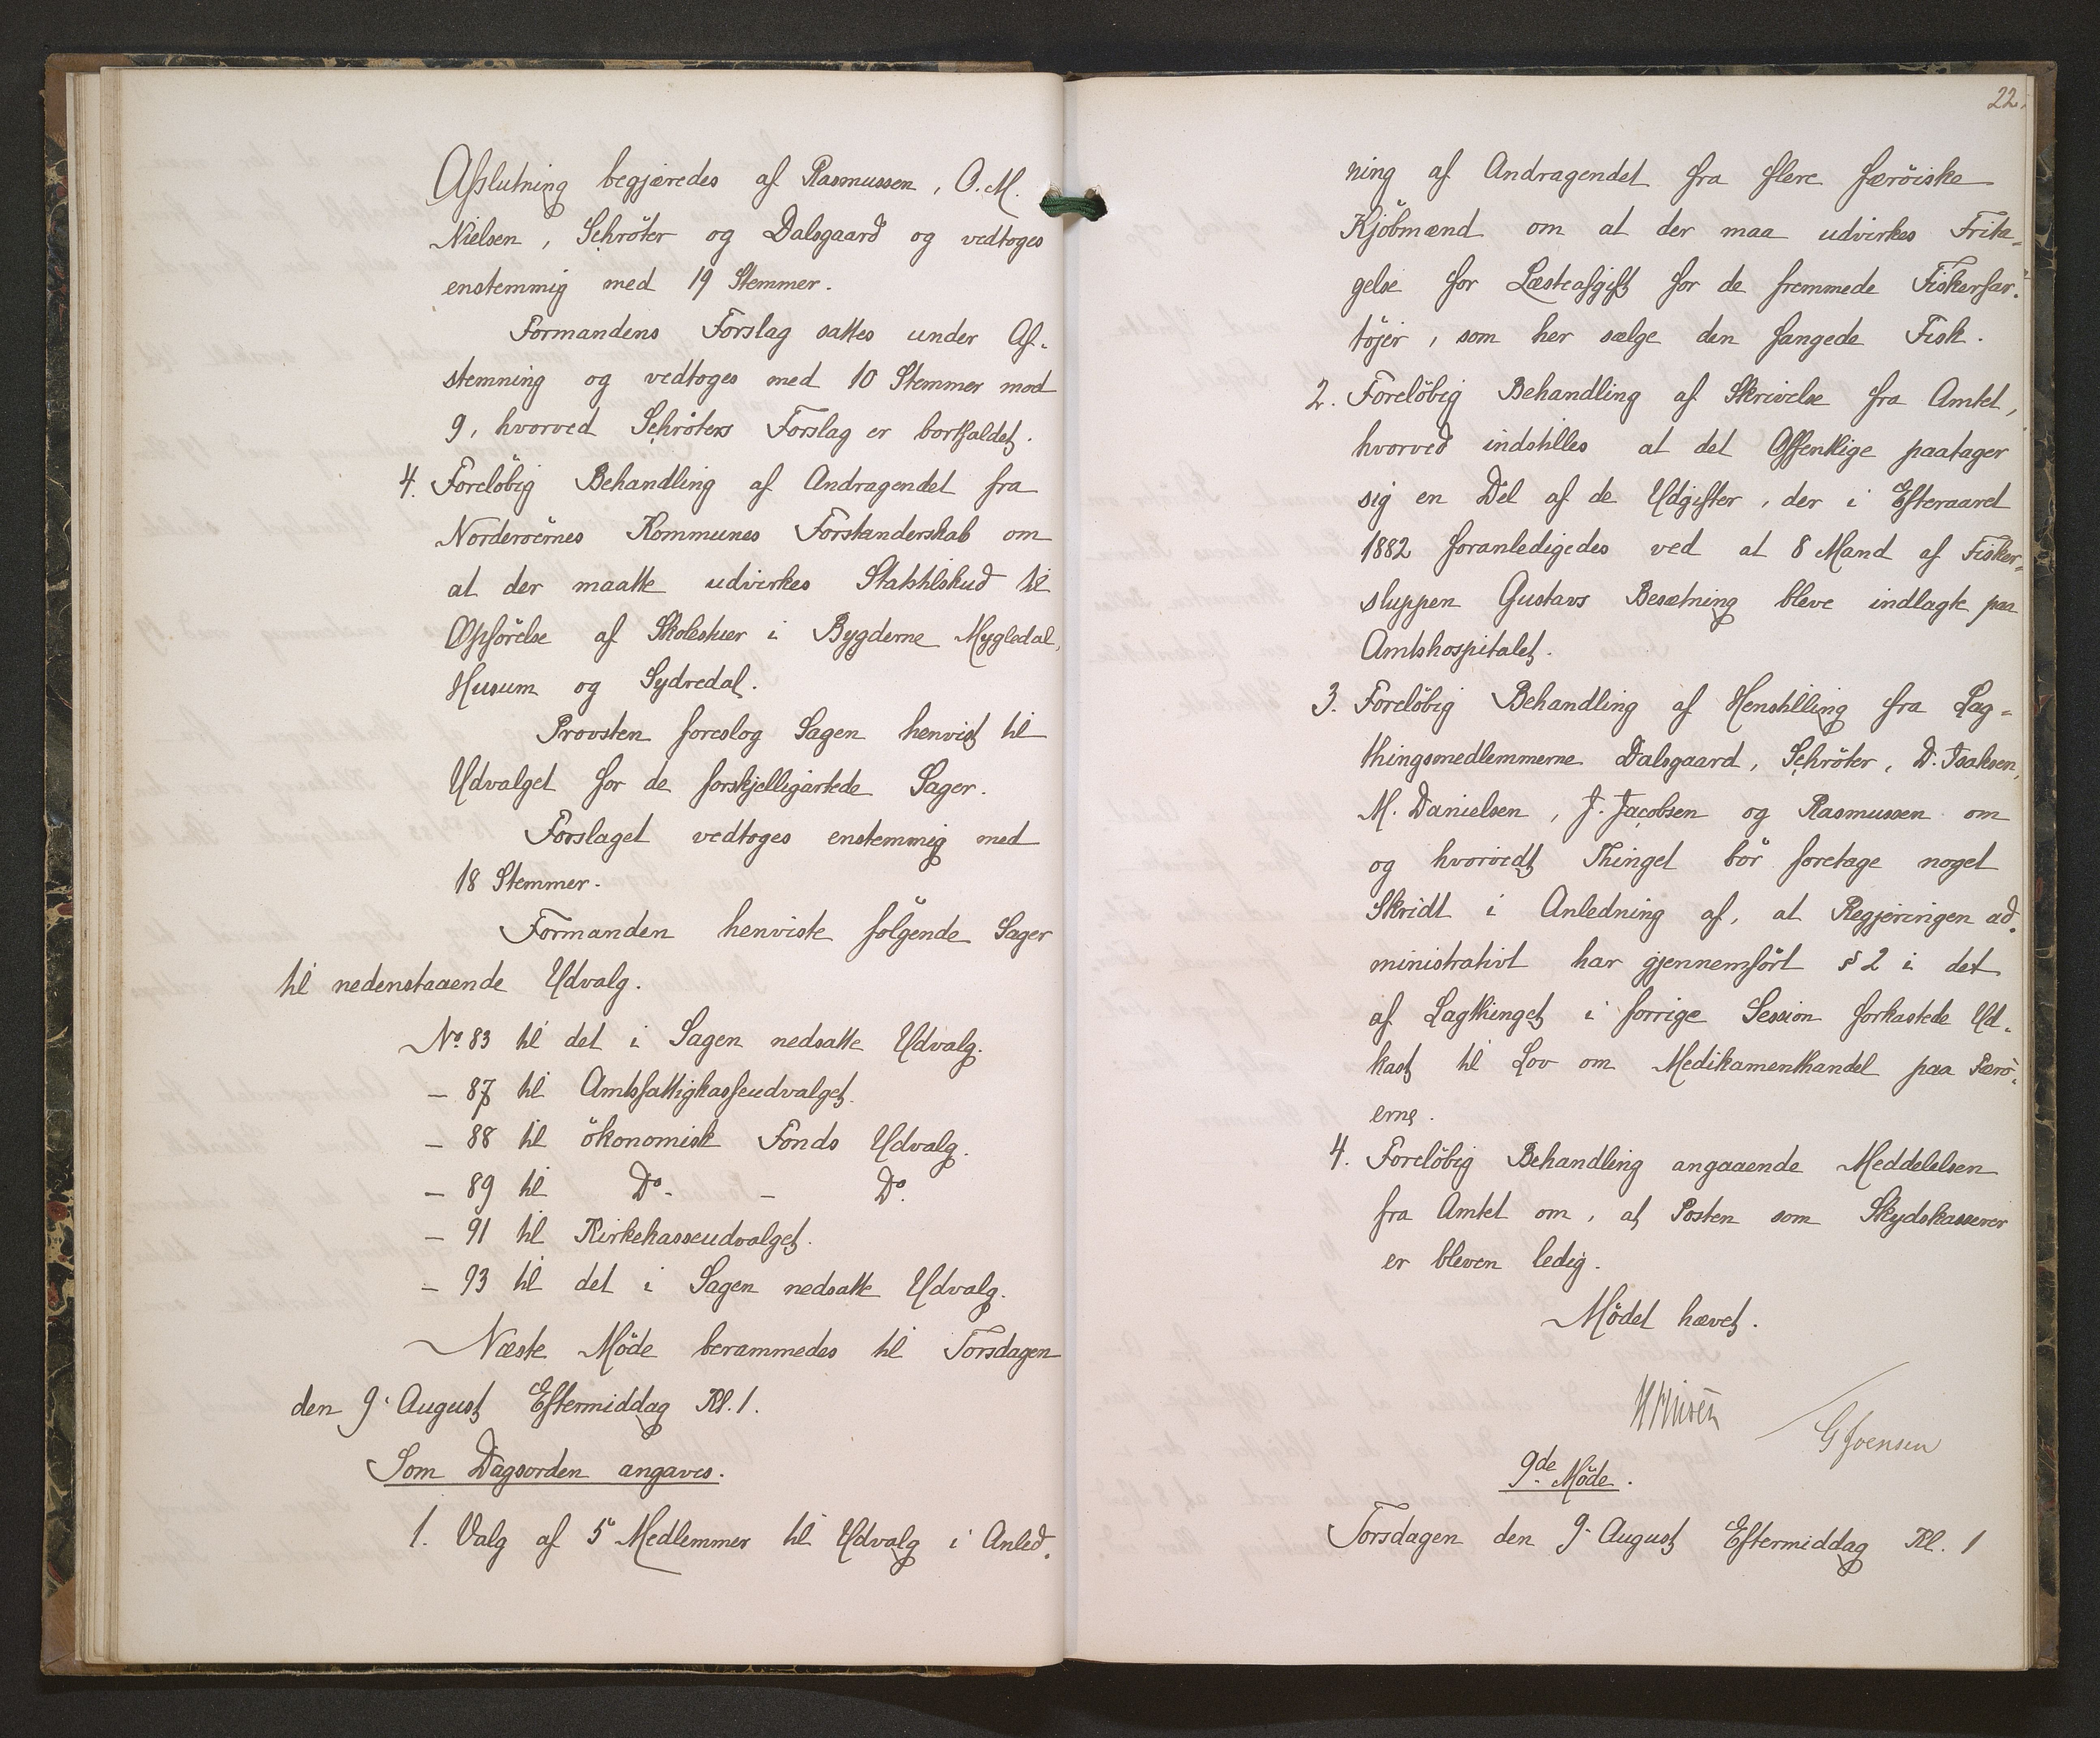 Afslutning begjæredes af Rasmussen, O. M.
Nielsen, Schröter og Dalsgaard og vedtoges
enstemmig med 19 Stemmer.
Formandens Forslag sattes under Af-
stemning og vedtoges med 10 Stemmer mod
9, hvorved Schröters Forslag er bortfaldet.
4. Foreløbig Behandling af Andragendet fra
Norderøernes Kommunes Forstanderskab om
at der maatte udvirkes Statstilskud til
Opførelse af Skolestuer i Bygderne Mygledal,
Husum og Sydredal.
Provsten foreslog Sagen henvist til
Udvalget for de forskjelligartede Sager.
Forslaget vedtoges enstemmig med
18 Stemmer.
Formanden henviste følgende Sager
til nedenstaaende Udvalg.
No. 83 til det i Sagen nedsatte Udvalg.
— 87 til Amtsfattigkasseudvalget.
— 88 til økonomisk Fonds Udvalg.
— 89 til Do. — Do.
— 91 til Kirkekasseudvalget.
— 93 til det i Sagen nedsatte Udvalg.
Næste Møde berammedes til Torsdagen
den 9. August Eftermiddag Kl. 1.
Som Dagsorden angaves.
1. Valg af 5 Medlemmer til Udvalg i Anled-
22.
ning af Andragendet fra flere færøiske
Kjøbmænd om at der maa udvirkes Frita-
gelse for Læsteafgift for de fremmede Fiskerfar-
tøjer, som her sælge den fangede Fisk.
2. Foreløbig Behandling af Skrivelse fra Amtet,
hvorved indstilles at det Offentlige paatager
sig en Del af de Udgifter, der i Efteraaret
1882 foranledigedes ved at 8 Mand af Fisker-
sluppen Gustavs Besætning bleve indlagte paa
Amtshospitalet.
3. Foreløbig Behandling af Henstilling fra Lag-
thingsmedlemmerne Dalsgaard, Schröter, D. Isaksen,
M. Danielsen, J. Jacobsen og Rasmussen om
og hvorvidt Thinget bør foretage noget
Skridt i Anledning af, at Regjeringen ad-
ministrativt har gjennemført § 2 i det
af Lagthinget i forrige Session forkastede Ud-
kast til Lov om Medikamenthandel paa Færø-
erne.
4. Foreløbig Behandling angaaende Meddelelsen
fra Amtet om, at Posten som Skydskasserer
er bleven ledig.
Mødet hævet.
G Joensen
9de Møde.
Torsdagen den 9. August Eftermiddag Kl. 1